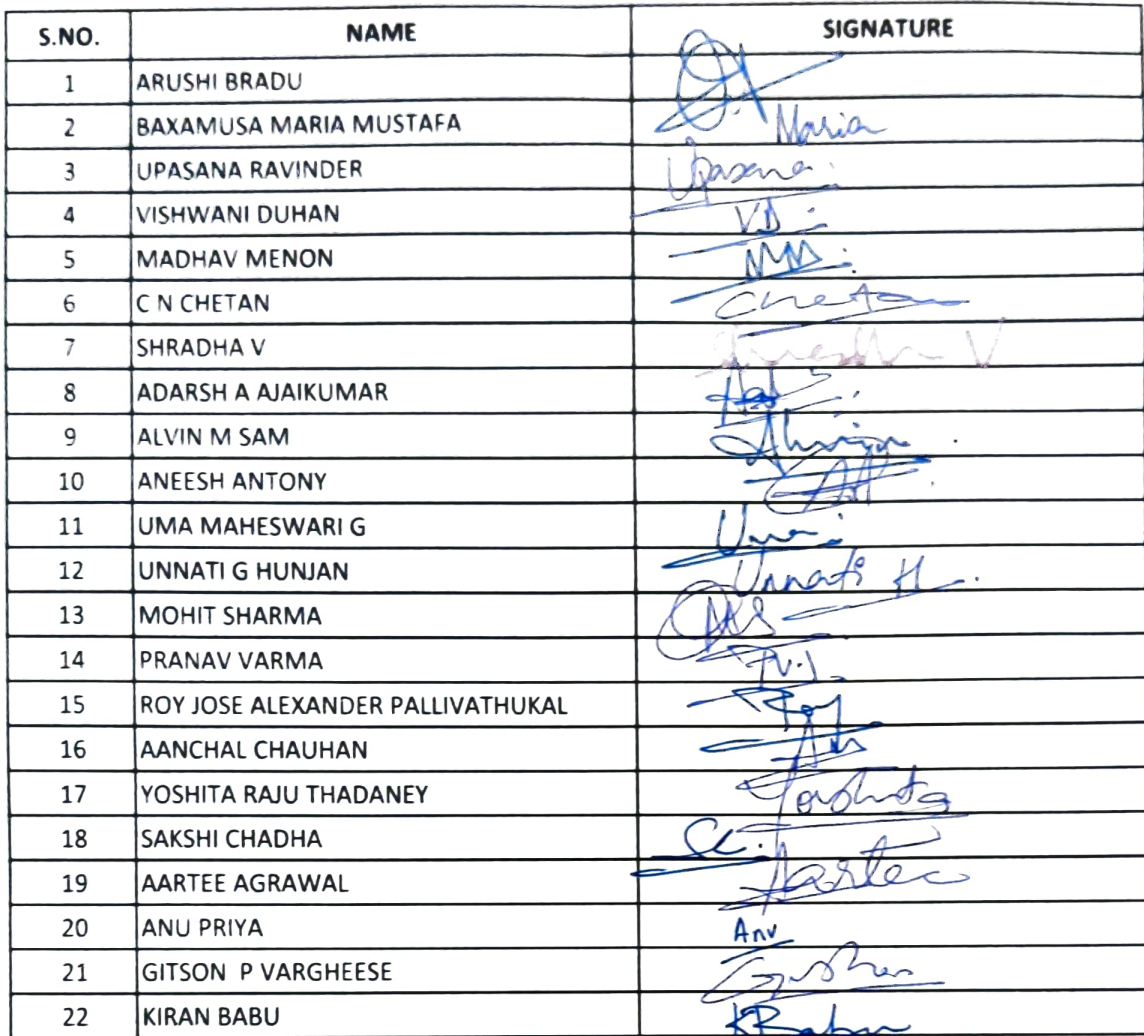 S.NO. NAME SIGNATURE
1 ARUSHI BRADU
2 BAXAMUSA MARIA MUSTAFA Maria
3 UPASANA RAVINDER Upasana
4 VISHWANI DUHAN VD
5 MADHAV MENON MM
6 C N CHETAN Chetan
7 SHRADHA V V
8 ADARSH A AJAIKUMAR
9 ALVIN M SAM Alvin
10 ANEESH ANTONY
11 UMA MAHESWARI G Uma
12 UNNATI G HUNJAN Unnati H
13 MOHIT SHARMA
14 PRANAV VARMA
15 ROY JOSE ALEXANDER PALLIVATHUKAL Roy
16 AANCHAL CHAUHAN
17 YOSHITA RAJU THADANEY Yoshita
18 SAKSHI CHADHA SC.
19 AARTEE AGRAWAL Aartee
20 ANU PRIYA Anu
21 GITSON P VARGHEESE
22 KIRAN BABU KBabu